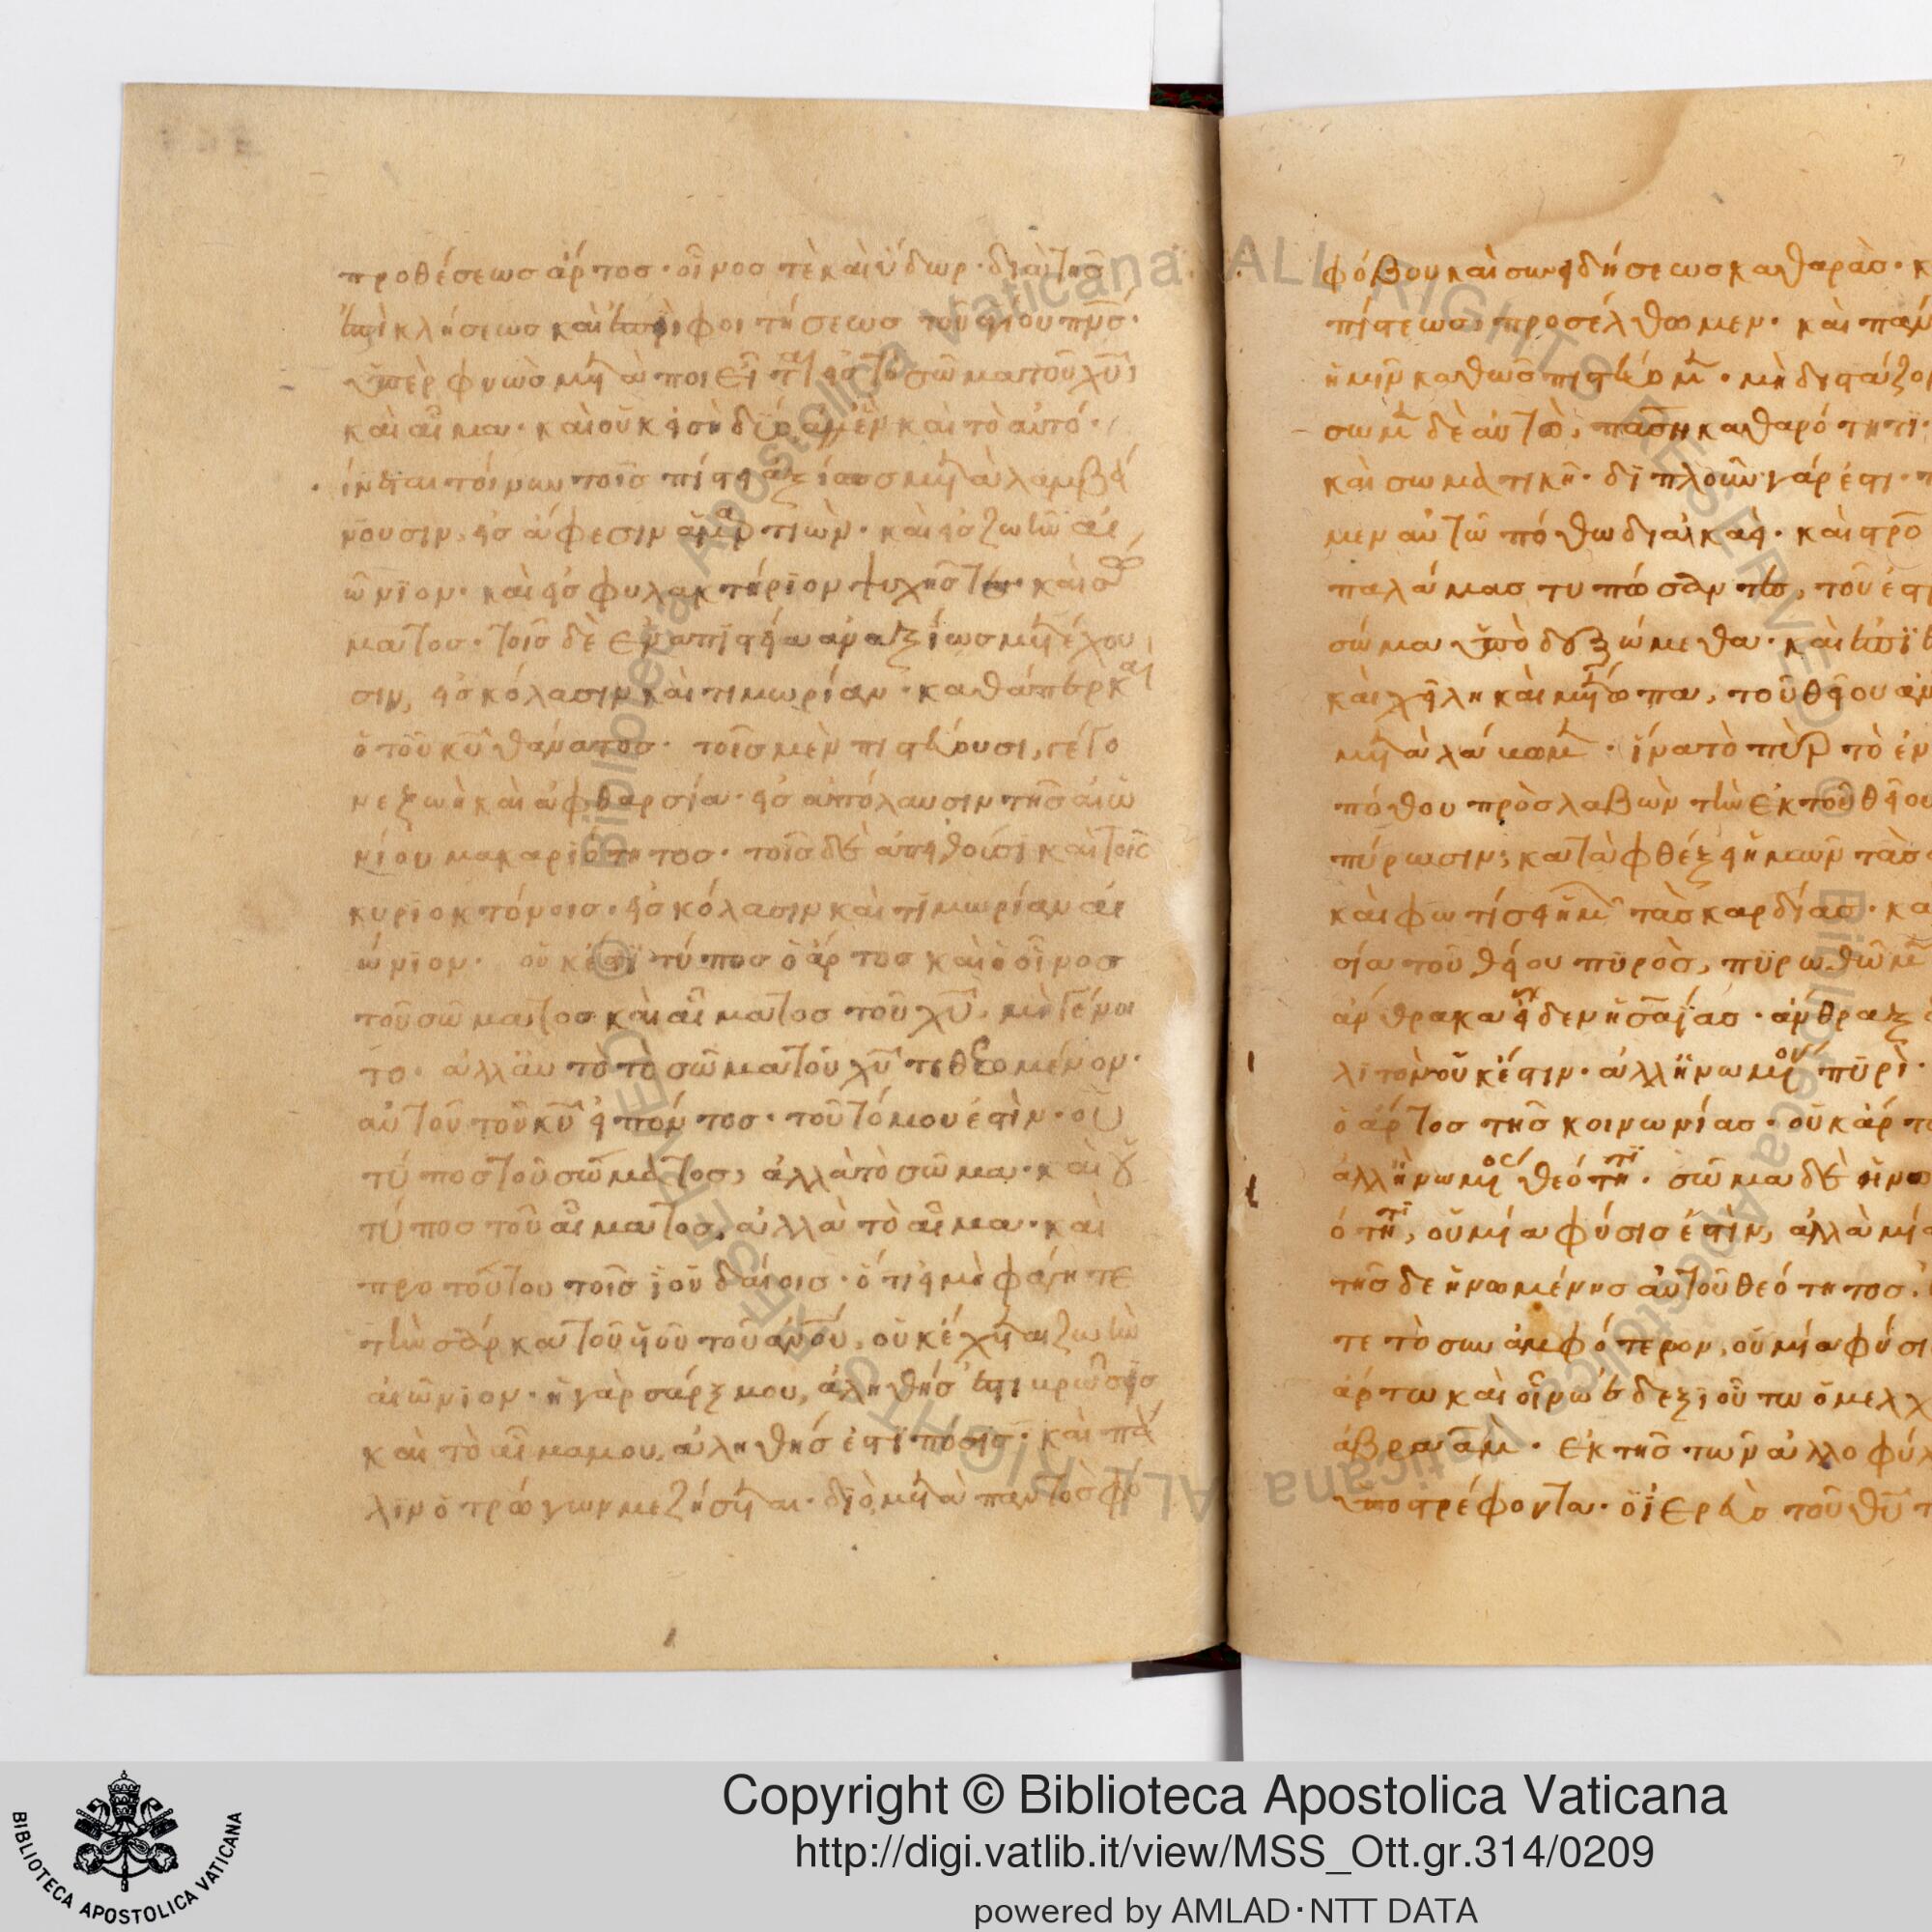 προθέσεως ἄρτος· οἶνος τὲ καὶ ὕδωρ· διὰ τῆς
ἐπικλήσεως καὶ ἐπιφοιτήσεως τοῦ ἁγίου πνς·
ὑπὲρ φυῶς μεταποιεῖται εἰς τὸ σῶμα τοῦ χῦ,
καὶ αἷμα· καὶ οὔκ εἰσὶ δύο ἀλλ' ἓν καὶ τὸ αὐτό·
γίνεται τοίνυν τοῖς πίστει ἀξίως μεταλαμβά
νουσιν, εἰς ἄφεσιν ἁμαρτιῶν· καὶ εἰς ζωὴν αἰ
ώνιον· καὶ εἰς φυλακτήριον ψυχῆς τὲ καὶ σώ
ματος· τοῖς δὲ ἐν ἀπιστία ἀναξίως μετέχου
σιν, εἰς κόλασιν καὶ τιμωρίαν· καθάπερ καὶ
ὁ τοῦ κῦ θάνατος· τοῖς μὲν πιστεύουσι, γέγο
νε ζωὴ καὶ ἀφθαρσία· εἰς ἀπόλαυσιν τῆς αἰω
νίου μακαριότητος· τοῖς δὲ ἀπειθοῦσι καὶ τοῖς
κυριοκτόνοις· εἰς κόλασιν καὶ τιμωρίαν αἰ
ώνιον· οὔκ ἔστι τύπος ὁ ἄρτος καὶ ὁ οἶνος
τοῦ σώματος καὶ αἵματος τοῦ χῦ, μὴ γένοι
το· ἀλλ' αὐτὸ τὸ σῶμα τοῦ χῦ τεθεομένον·
αὐτοῦ τοῦ κῦ εἰπόντος· τοῦτό μου ἐστὶν· οὐ
τύπος τοῦ σώματος, ἀλλὰ τὸ σῶμα· καὶ οὐ
τύπος τοῦ αἵματος, ἀλλὰ τὸ αἷμα· καὶ
προ τούτου τοῖς ἰουδαίοις· ὅτι εἰ μὴ φάγητε
τὴν σάρκα τοῦ υἱοῦ τοῦ ἀνου, οὐκ ἔχεται ζωὴν
αἰώνιον· ἡ γὰρ σάρξ μου, ἀληθής ἐστι βρῶσις
καὶ τὸ αἷμα μου, ἀληθής ἐστι πόσις· καὶ πά
λιν ὁ τρώγων με ζήσεται· διὸ μετὰ παντὸς φό
φόβου καὶ συνειδήσεως καθαρᾶς· κ
πίστεως προσέλθωμεν· καὶ πάν
ἡμῖν καθὼς πιστεύομεν· μὴ διστάζο
σωμεν δὲ αὐτὸ, πάση καθαρότητι·
καὶ σωματικῆ· διπλοῦν γάρ ἐστι· π
μεν αὐτῶ πόθω διακαεῖ· καὶ στρο
παλάμας τυπώσαντες, τοῦ ἐστ
σώμα ὑποδεξώμεθα· καὶ ἐπιθ
καὶ χείλη καὶ μέτωπα, τοῦ θείου ἀν
μεταλάβωμεν· ἵνα τὸ πῦρ τὸ ἐν
πόθου πρὸσλαβὼν τὴν ἐκ τοῦ θείου
πύρωσιν, καταφθέξει ἡμῶν τὰς
καὶ φωτίσει ἡμῶν τὰς καρδίας· κα
σία τοῦ θείου πυρὸς, πυρωθῶμεν
ἄνθρακα εἶδεν ἡσαΐας· ἄνθραξ
λιτὸν οὔκ ἔστιν· ἀλλ' ἡνωμένον πυρὶ·
ὁ ἄρτος τῆς κοινωνίας· οὐκ ἄρτο
ἀλλ' ἡνωμένος θεότητι· σῶμα δὲ ἡνω
ότητι, οὐ μία φύσις ἐστὶν, ἀλλὰ μία
τῆς δε ἡνωμένης αὐτοῦ θεότητος·
τε τὸ συναμφότερον, οὐ μία φύσι
ἄρτω καὶ οἴνω ἐδεξιοῦτω ὁ μελχ
ἀβραὰμ· ἐκ τῆς τῶν ἀλλοφύλ
ὑποστρέφοντα· ὁ ἱερεὺς τοῦ θῦ τ
Biblioteca Apostolica Vaticana ALL RIGHTS RESERVED ©
Copyright © Biblioteca Apostolica Vaticana
http://digi.vatlib.it/view/MSS_Ott.gr.314/0209
powered by AMLAD·NTT DATA
BIBLIOTECA APOSTOLICA VATICANA